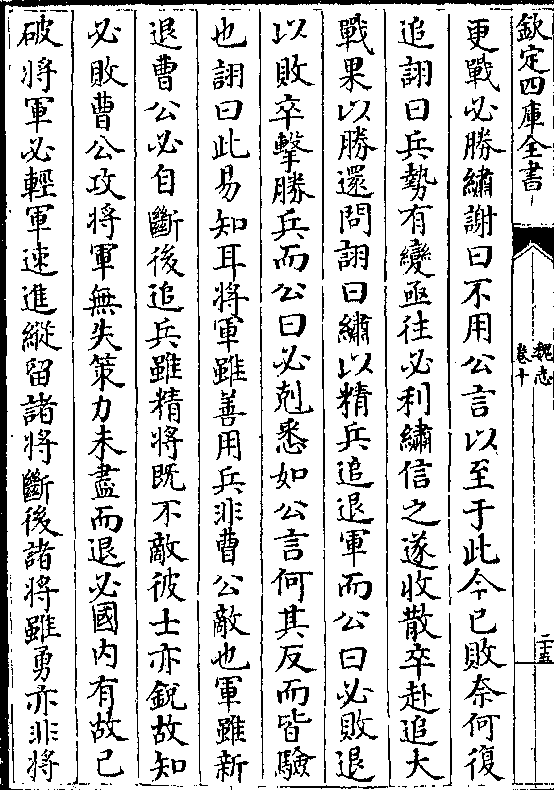 欽定四庫全書
魏志
卷十
二十五
更戰必勝繡謝曰不用公言以至于此今已敗奈何復
追詡曰兵勢有變亟往必利繡信之遂收散卒赴追大
戰果以勝還問詡曰繡以精兵追退軍而公曰必敗退
以敗卒擊勝兵而公曰必剋悉如公言何其反而皆驗
也詡曰此易知耳將軍雖善用兵非曹公敵也軍雖新
退曹公必自斷後追兵雖精將既不敵彼士亦銳故知
必敗曹公攻將軍無失策力未盡而退必國内有故已
破將軍必輕軍速進縱留諸將斷後諸將雖勇亦非將